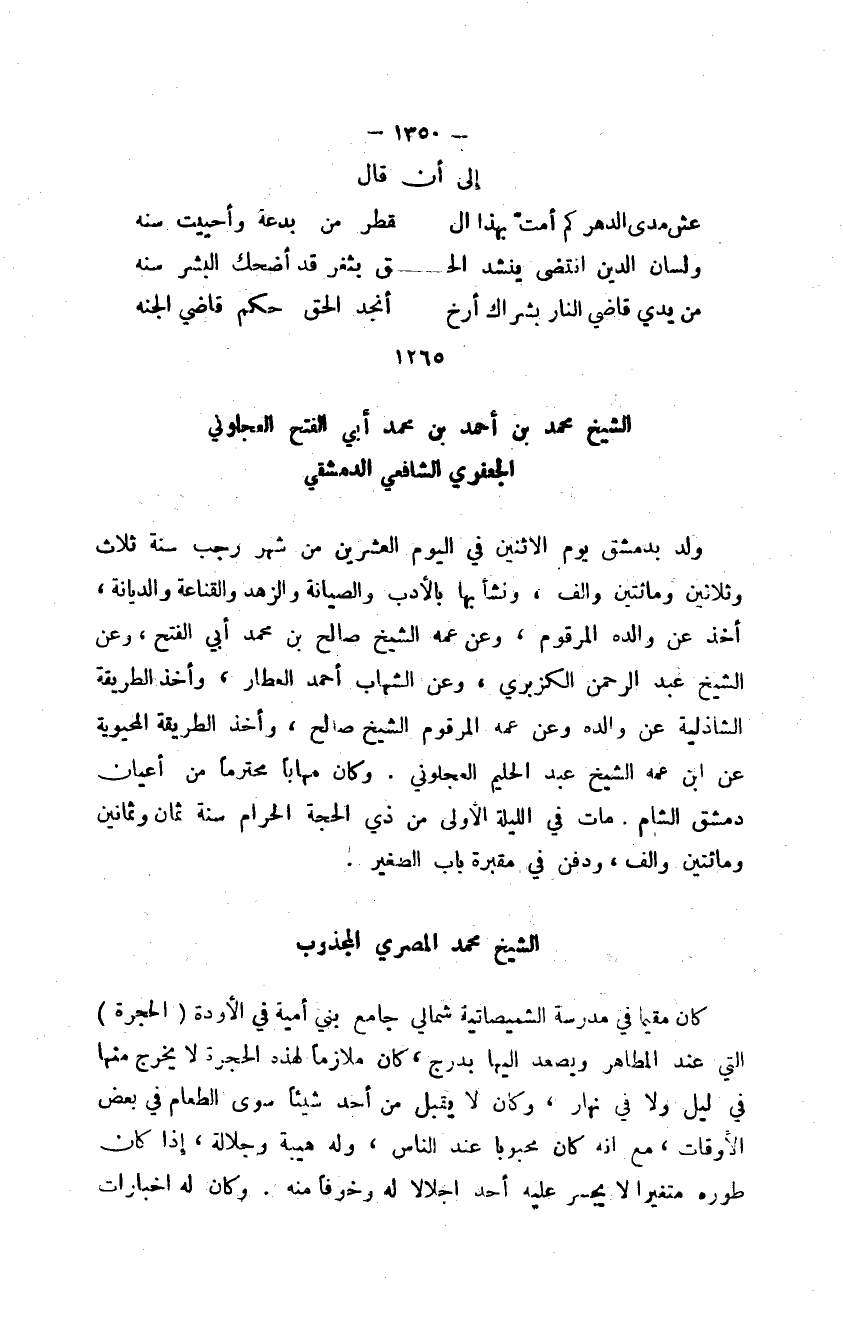 — ١٣٥٠ —
إلى أن قال
عش مدى الدهر كم أمت بهذا ال قطر من بدعة وأحييت سنه
ولسان الدين انتضى ينشد الحـ ـق بثغر قد أضحك البشر سنه
من يدي قاضي النار بشراك أرخ أنجد الحق حكم قاضي الجنه
١٢٦٥
الشيخ محمد بن أحمد بن محمد أبي الفتح العجلوني
الجعفري الشافعي الدمشقي
ولد بدمشق يوم الاثنين في اليوم العشرين من شهر رجب سنة ثلاث
وثلاثين ومائتين والف ، ونشأ بها بالأدب والصيانة والزهد والقناعة والديانة ،
أخذ عن والده المرقوم ، وعن عمه الشيخ صالح بن محمد أبي الفتح ، وعن
الشيخ عبد الرحمن الكزبري ، وعن الشهاب أحمد العطار ، وأخذ الطريقة
الشاذلية عن والده وعن عمه المرقوم الشيخ صالح ، وأخذ الطريقة المحيوية
عن ابن عمه الشيخ عبد الحليم العجلوني . وكان مهاباً محترماً من أعيان
دمشق الشام . مات في الليلة الأولى من ذي الحجة الحرام سنة ثمان وثمانين
ومائتين والف ، ودفن في مقبرة باب الصغير .
الشيخ محمد المصري المجذوب
كان مقيما في مدرسة الشميصاتية شمالي جامع بني أمية في الأودة ( الحجرة )
التي عند المطاهر ويصعد اليها بدرج ، كان ملازماً لهذه الحجرة لا يخرج منها
في ليل ولا في نهار ، وكان لا يقبل من أحد شيئاً سوى الطعام في بعض
الأوقات ، مع انه كان محبوبا عند الناس ، وله هيبة وجلالة ، إذا كان
طوره متغيرا لا يجسر عليه أحد اجلالا له وخوفاً منه . وكان له اخبارات